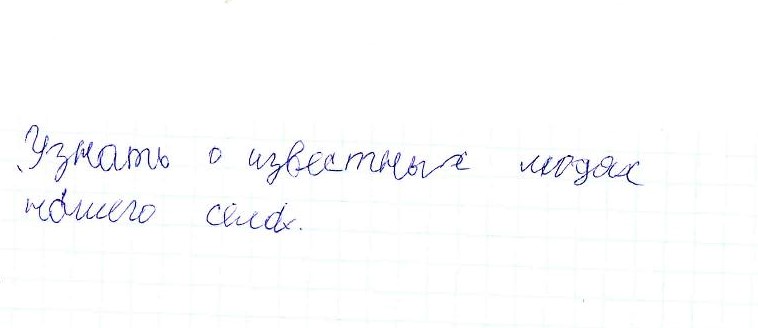 Узнать о известных людях
нашего села.